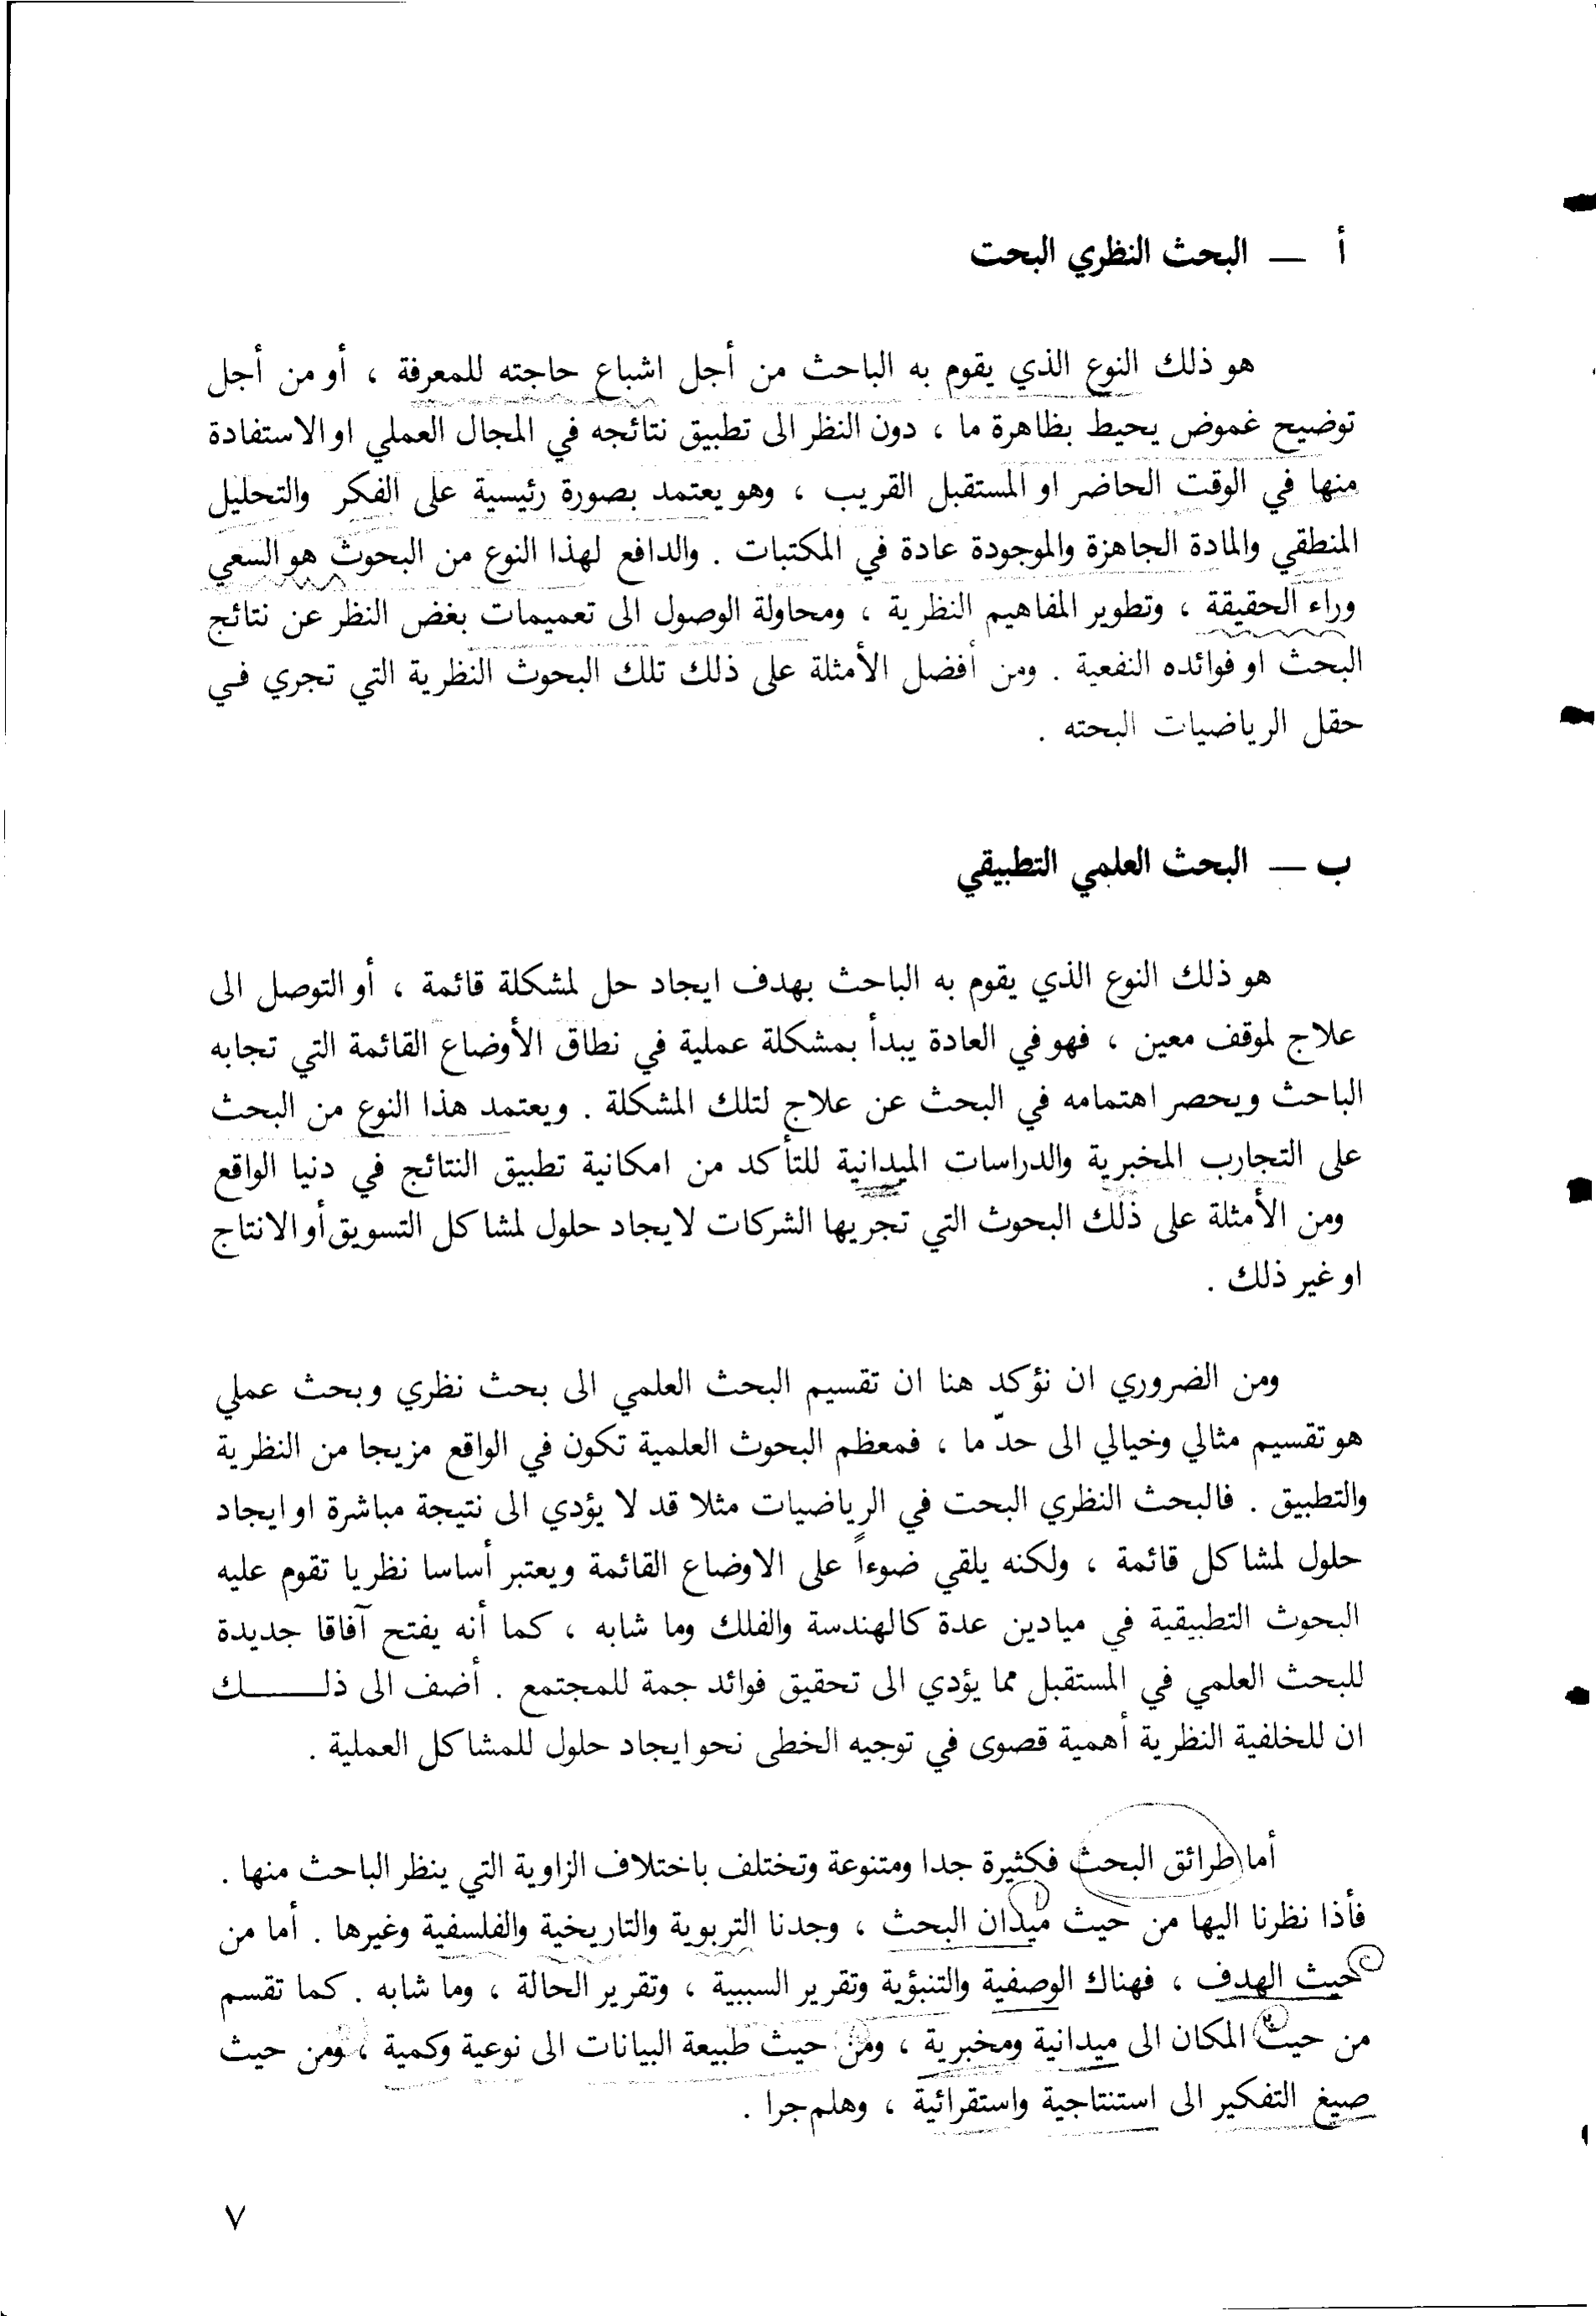 أ — البحث النظري البحت
هو ذلك النوع الذي يقوم به الباحث من أجل اشباع حاجته للمعرفة ، أو من أجل
توضيح غموض يحيط بظاهرة ما ، دون النظر الى تطبيق نتائجه في المجال العملي او الاستفادة
منها في الوقت الحاضر او المستقبل القريب ، وهو يعتمد بصورة رئيسية على الفكر والتحليل
المنطقي والمادة الجاهزة والموجودة عادة في المكتبات . والدافع لهذا النوع من البحوث هو السعي
وراء الحقيقة ، وتطوير المفاهيم النظرية ، ومحاولة الوصول الى تعميمات بغض النظر عن نتائج
البحث او فوائده النفعية . ومن أفضل الأمثلة على ذلك تلك البحوث النظرية التي تجري في
حقل الرياضيات البحته .
ب — البحث العلمي التطبيقي
هو ذلك النوع الذي يقوم به الباحث بهدف ايجاد حل لمشكلة قائمة ، أو التوصل الى
علاج لموقف معين ، فهو في العادة يبدأ بمشكلة عملية في نطاق الأوضاع القائمة التي تجابه
الباحث ويحصر اهتمامه في البحث عن علاج لتلك المشكلة . ويعتمد هذا النوع من البحث
على التجارب المخبرية والدراسات الميدانية للتأكد من امكانية تطبيق النتائج في دنيا الواقع
ومن الأمثلة على ذلك البحوث التي تجريها الشركات لايجاد حلول لمشاكل التسويق أو الانتاج
او غير ذلك .
ومن الضروري ان نؤكد هنا ان تقسيم البحث العلمي الى بحث نظري وبحث عملي
هو تقسيم مثالي وخيالي الى حدّ ما ، فمعظم البحوث العلمية تكون في الواقع مزيجا من النظرية
والتطبيق . فالبحث النظري البحت في الرياضيات مثلا قد لا يؤدي الى نتيجة مباشرة او ايجاد
حلول لمشاكل قائمة ، ولكنه يلقي ضوءاً على الاوضاع القائمة ويعتبر أساسا نظريا تقوم عليه
البحوث التطبيقية في ميادين عدة كالهندسة والفلك وما شابه ، كما أنه يفتح آفاقا جديدة
للبحث العلمي في المستقبل مما يؤدي الى تحقيق فوائد جمة للمجتمع . أضف الى ذلـــــك
ان للخلفية النظرية أهمية قصوى في توجيه الخطى نحو ايجاد حلول للمشاكل العملية .
أما طرائق البحث فكثيرة جدا ومتنوعة وتختلف باختلاف الزاوية التي ينظر الباحث منها .
فأذا نظرنا اليها من حيث ميدان البحث ، وجدنا التربوية والتاريخية والفلسفية وغيرها . أما من
حيث الهدف ، فهناك الوصفية والتنبؤية وتقرير السببية ، وتقرير الحالة ، وما شابه . كما تقسم
من حيث المكان الى ميدانية ومخبرية ، ومن حيث طبيعة البيانات الى نوعية وكمية ، ومن حيث
صيغ التفكير الى استنتاجية واستقرائية ، وهلم جرا .
٧